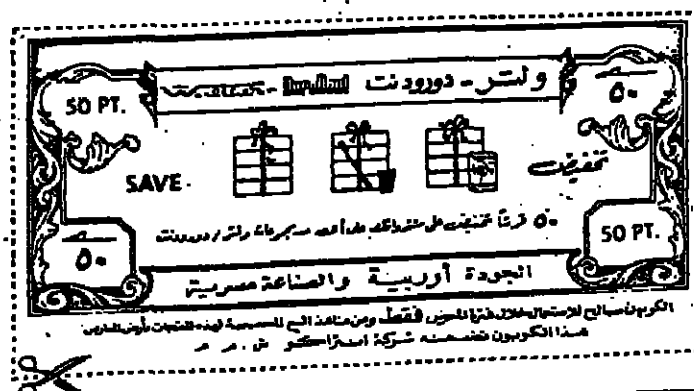 ولتر - دورودنت
50 PT.
٥٠
SAVE
تخفيض
٥٠ قرشاً تخفيض على مشترواتك من أحد مجموعات ولتر / دورودنت
٥٠
50 PT.
الجودة أوربية والصناعة مصرية
الكوبون صالح للاستعمال خلال فترة المعرض فقط ومن منافذ البيع المخصصة لهذه المنتجات بأرض المعارض
هذا الكوبون تضمنه شركة استراكو ش . م . م